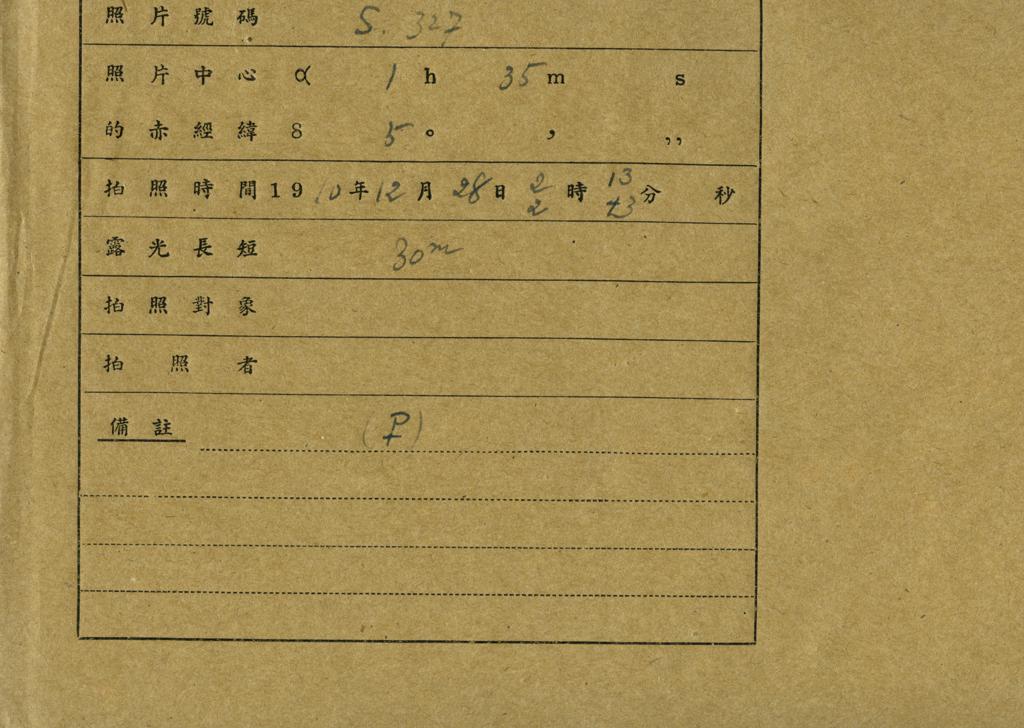 照片號碼 S. 327
照片中心 α 1 h 35 m s
的赤經緯 δ 5 ° ’ ’’
拍照時間 1910年12月28日 2 時 13 分 秒
2 43
露光長短 30m
拍照對象
拍照者
備註 (P)